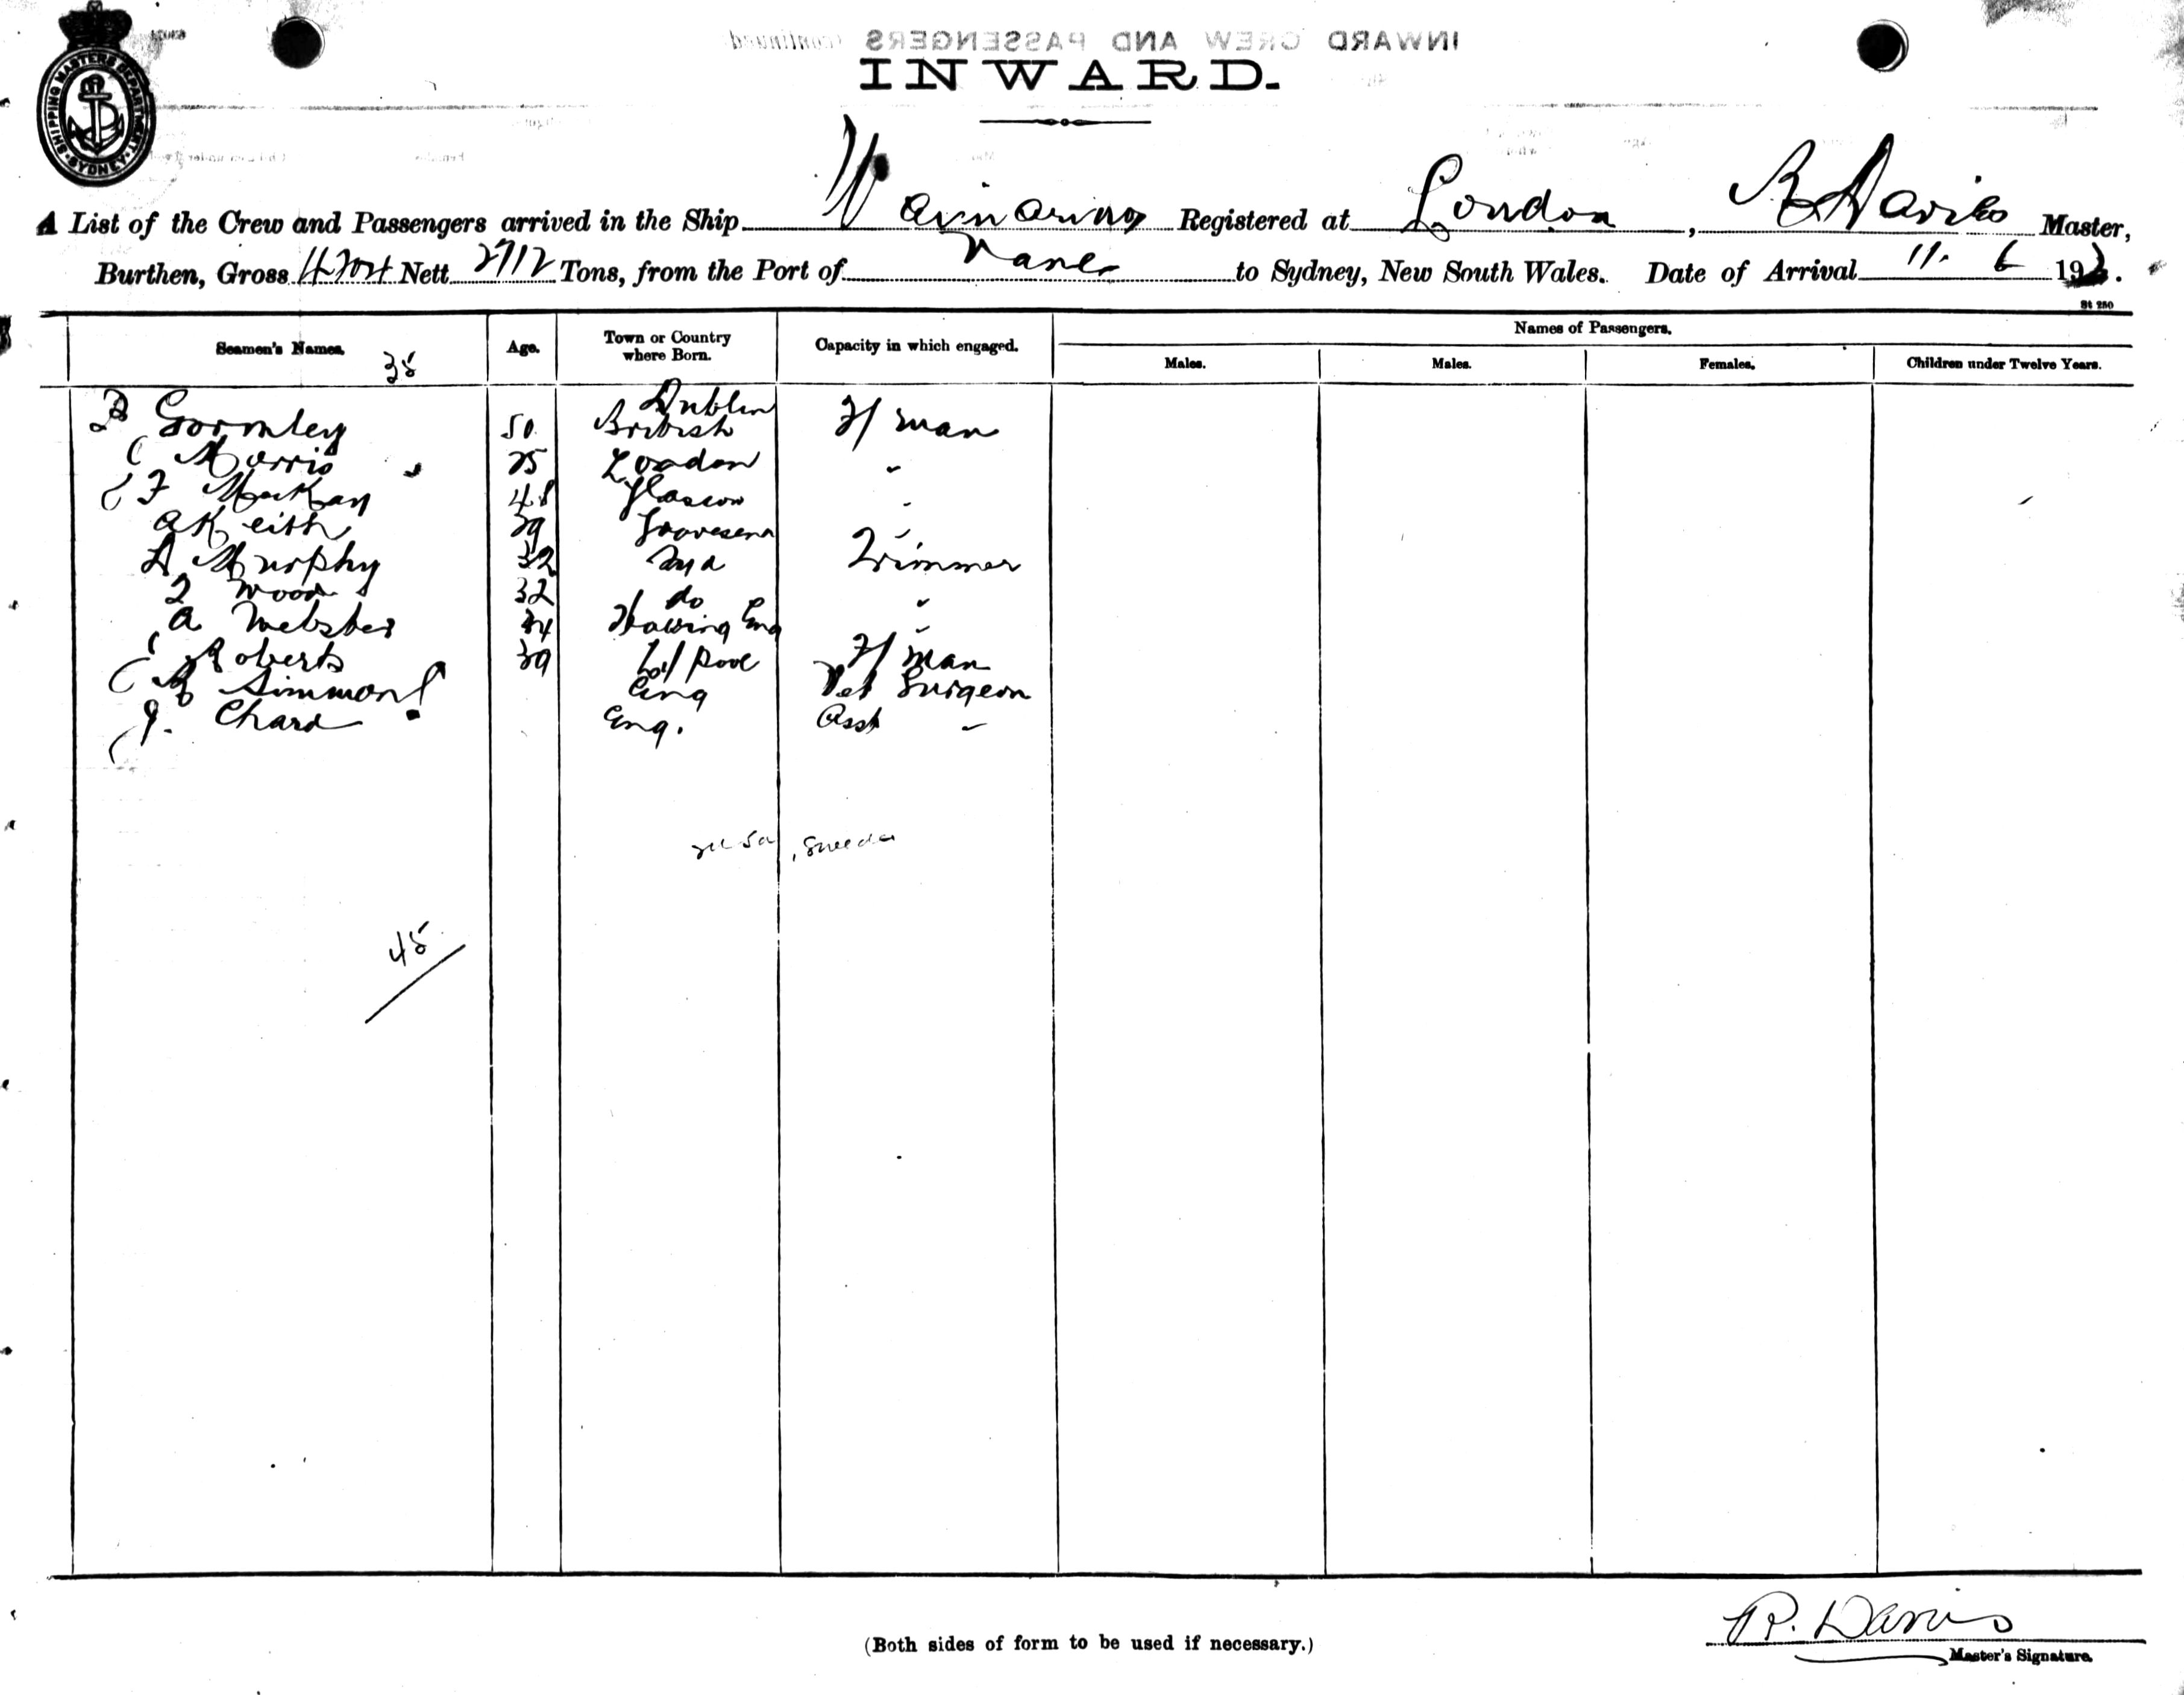 SHIPPING MASTER'S DEPARTMENT. SYDNEY
INWARD CREW AND PASSENGERS (continued
INWARD.
A List of the Crew and Passengers arrived in the Ship Registered at London, Davies Master,
Burthen, Gross Nett 2712 Tons, from the Port of to Sydney, New South Wales. Date of Arrival 11. 6 19
St 250
Seamen's Names. Age. Town or Country where Born. Capacity in which engaged. Names of Passengers.
Males. Males. Females. Children under Twelve Years.
38
Dublin
Gormley 50 British F/man
Morris 25 London "
F McKay 48 Glascow "
A Keith 39 Gravesend "
Murphy 32 Trimmer
Wood 32 do "
A Webster Eng "
Roberts 39 L/pool F/man
Simmons Eng Vet Surgeon
J. Chard Eng. Asst "
45
(Both sides of form to be used if necessary.)
R. Davies
Master's Signature.